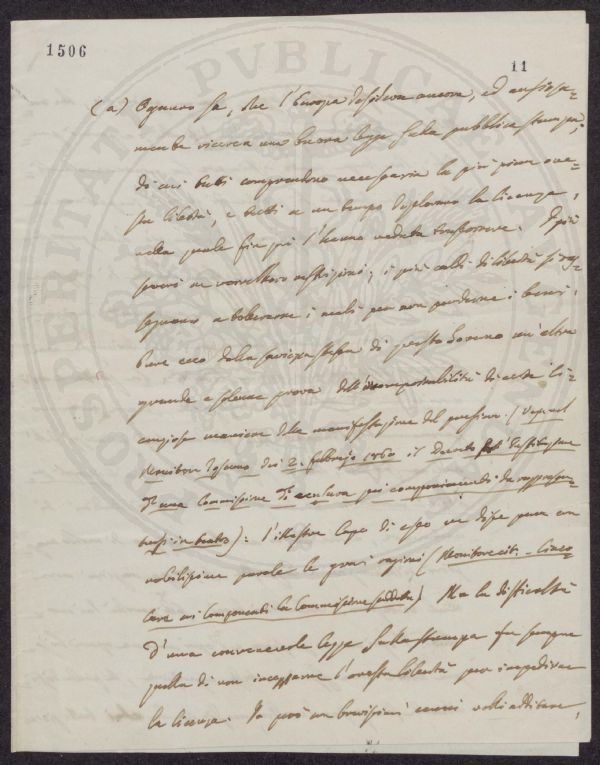 1506
11
(a) Ognuno sa, che l'Europa desidera ancora, ed ansiosa-
mente ricerca una buona legge sulla pubblica stampa,
di cui tutti comprendono necessaria la più piena one-
sta libertà, e tutti a un tempo deplorano la licenza,
nella quale fin qui l'hanno veduta trascorrere. I più
ne vorrebbero restrizioni; i più caldi di libertà si ras-
segnano a tollerarne i mali per non perderne i beni.
Pure ecco dalla sapienza stessa di questo Governo un'altra
grande e solenne prova dell'incomportabilità di certa li-
cenziosa maniera della manifestazione del pensiero. (Vedi nel
Monitore Toscano dei 2. febbrajo 1860 il Decreto
d'una Commissione di censura pei componimenti da rappresen-
tarsi in teatro): l'illustre Capo di esso ne disse pure con
nobilissime parole le gravi ragioni (Monitore cit. - Circo-
lare ai Componenti la Commissione suddetta) Ma la difficoltà
d'una convenevole legge sulla stampa fu sempre
quella di non incepparne l'onesta libertà per impedirne
la licenza. Io però con brevissimi cenni volli additare,